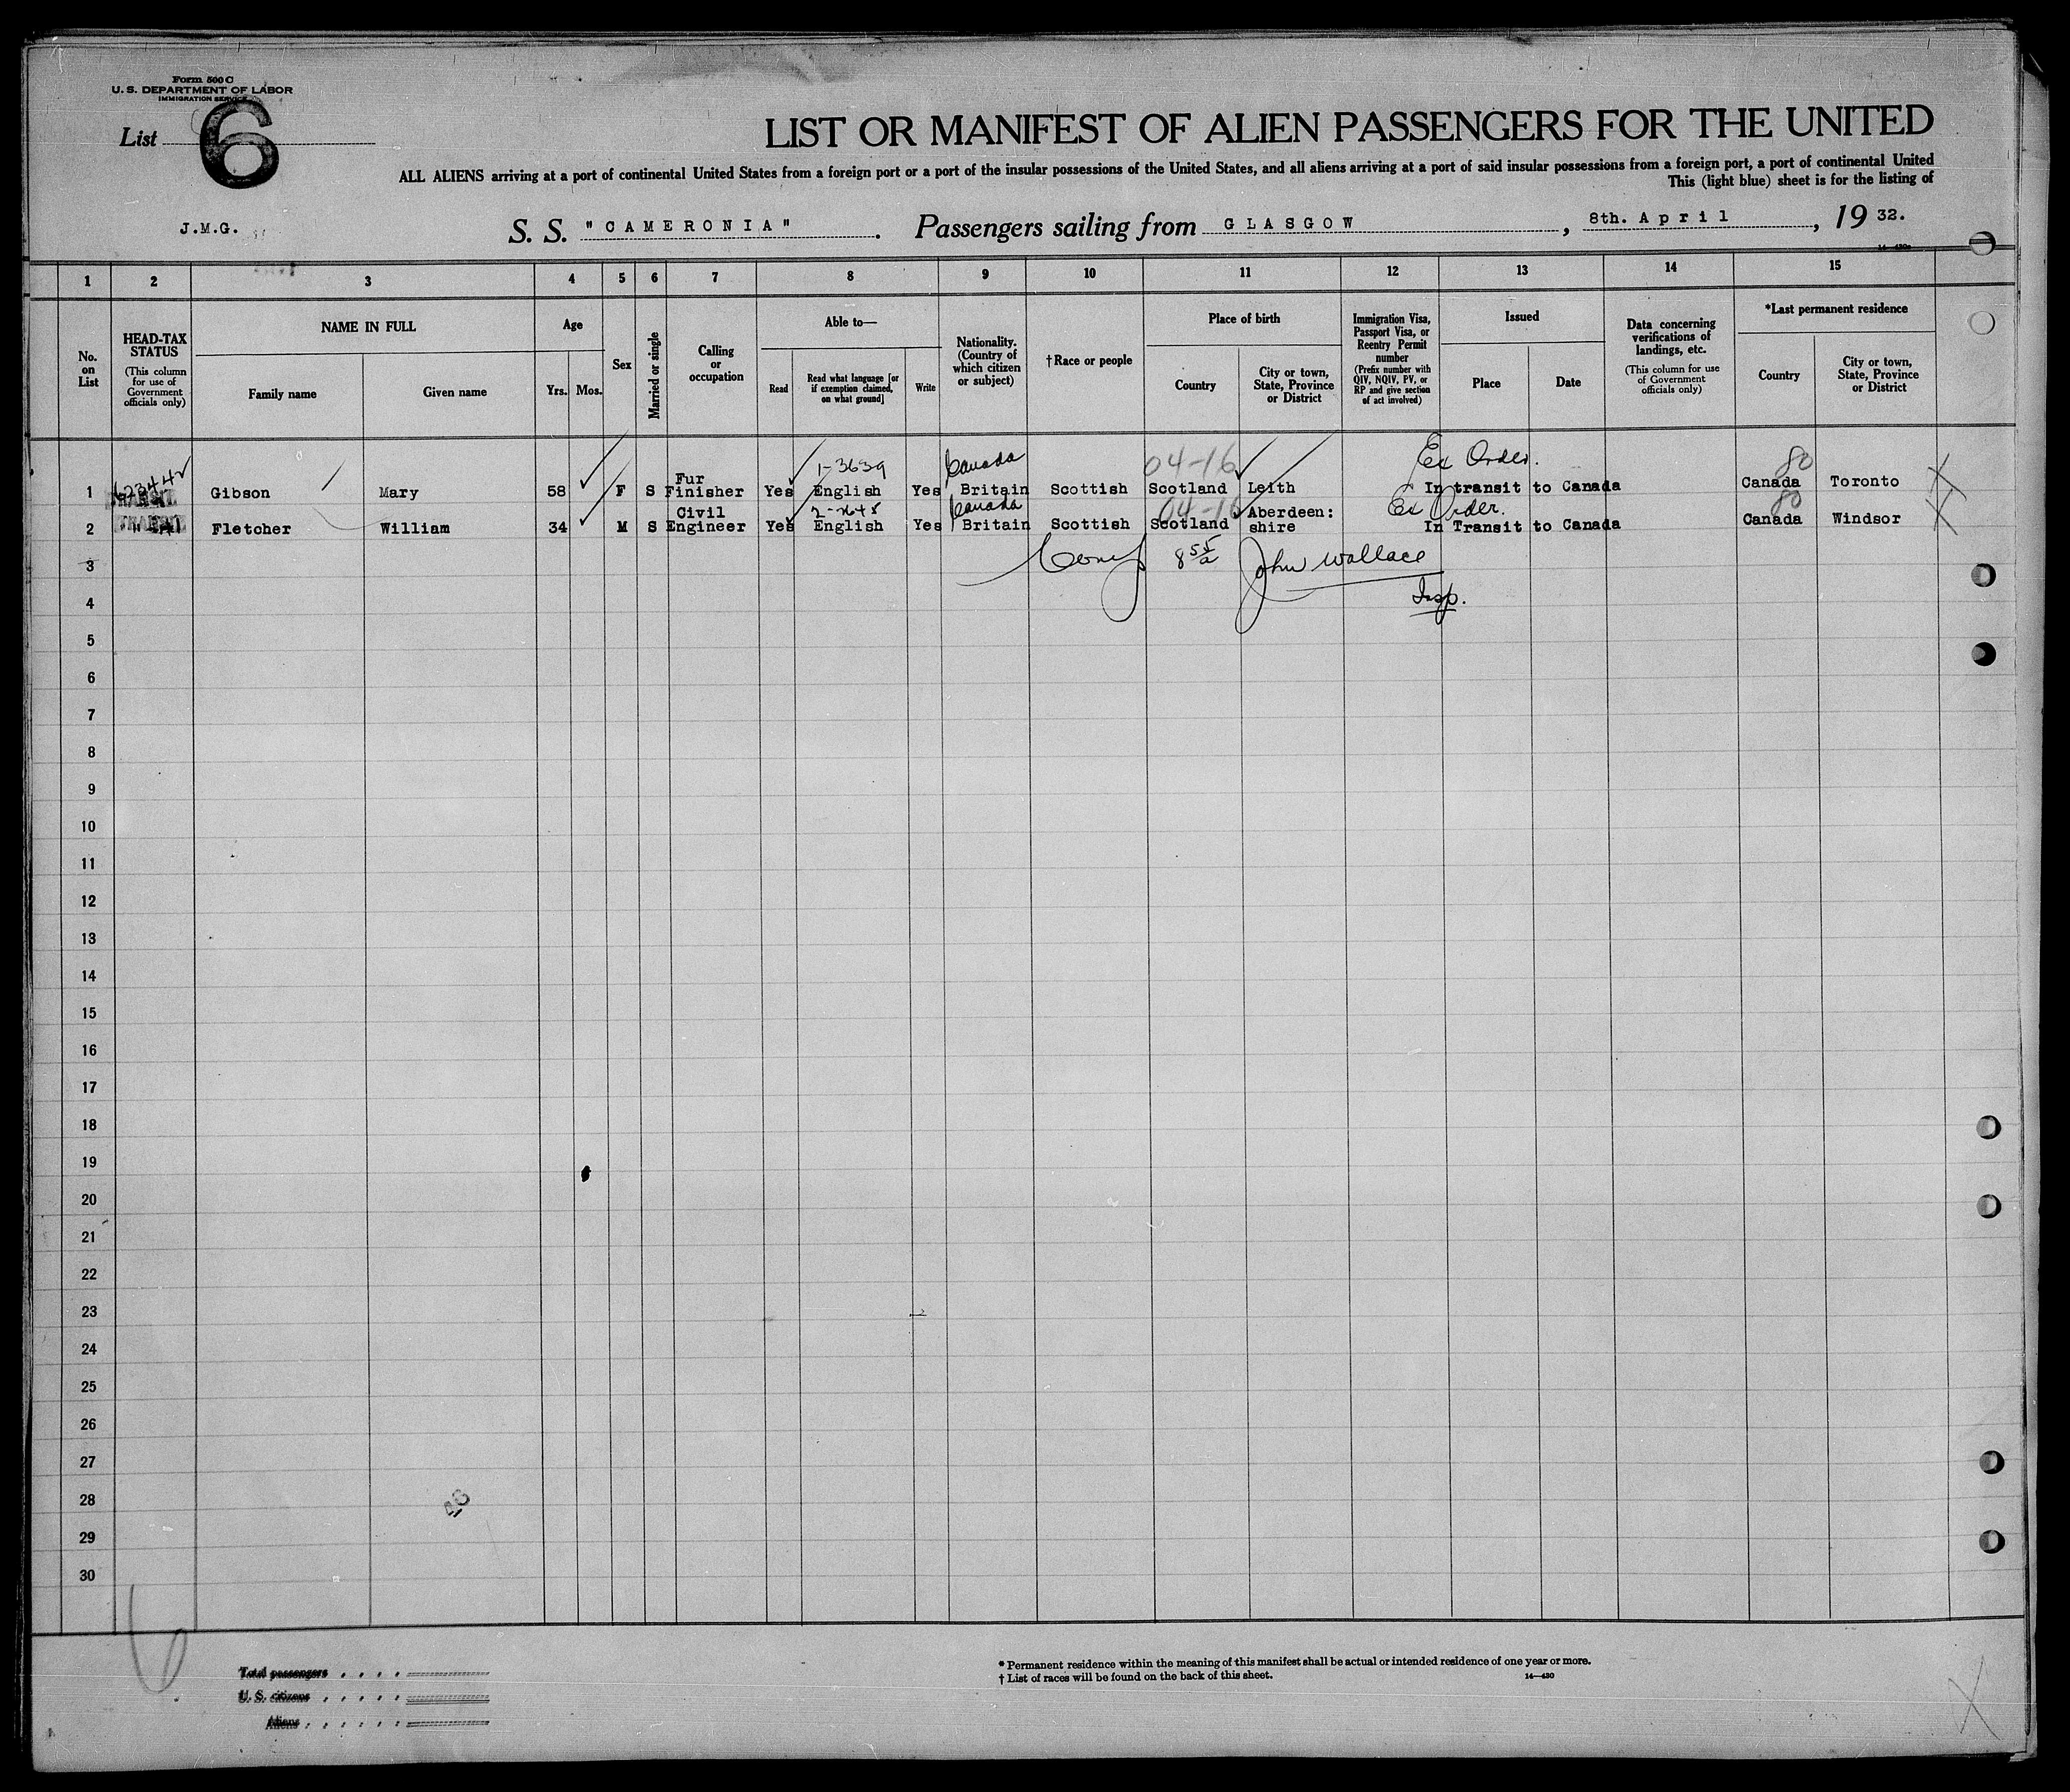 Form 500 C
U. S. DEPARTMENT OF LABOR
IMMIGRATION SERVICE
List 6
LIST OR MANIFEST OF ALIEN PASSENGERS FOR THE UNITED
ALL ALIENS arriving at a port of continental United States from a foreign port or a port of the insular possessions of the United States, and all aliens arriving at a port of said insular possessions from a foreign port, a port of continental United
This (light blue) sheet is for the listing of
J.M.G.
S. S. "CAMERONIA". Passengers sailing from GLASGOW, 8th. April, 19 32.
1 2 3 4 5 6 7 8 9 10 11 12 13 14 15
No. on List
HEAD-TAX STATUS
(This column for use of Government officials only)
NAME IN FULL
Family name
Given name
Age
Yrs.
Mos.
Sex
Married or single
Calling or occupation
Able to—
Read
Read what language [or if exemption claimed, on what ground]
Write
Nationality. (Country of which citizen or subject)
†Race or people
Place of birth
Country
City or town, State, Province or District
Immigration Visa, Passport Visa, or Reentry Permit number
(Prefix number with QIV, NQIV, PV, or RP and give section of act involved)
Issued
Place
Date
Data concerning verifications of landings, etc.
(This column for use of Government officials only)
*Last permanent residence
Country
City or town, State, Province or District
1-3639 Canada 04-16 Ex Order. 80
1 TRANSIT Gibson Mary 58 F S Fur Finisher Yes English Yes Britain Scottish Scotland Leith In transit to Canada Canada Toronto
Canada 04-16 Ex Order. 80
2 TRANSIT Fletcher William 34 M S Civil Engineer Yes English Yes Britain Scottish Scotland Aberdeen: shire In Transit to Canada Canada Windsor
3 John Wallace
4 Insp.
5
6
7
8
9
10
11
12
13
14
15
16
17
18
19
20
21
22
23
24
25
26
27
28
29
30
Total passengers
U. S. citizens
Aliens
* Permanent residence within the meaning of this manifest shall be actual or intended residence of one year or more.
† List of races will be found on the back of this sheet.
14—430